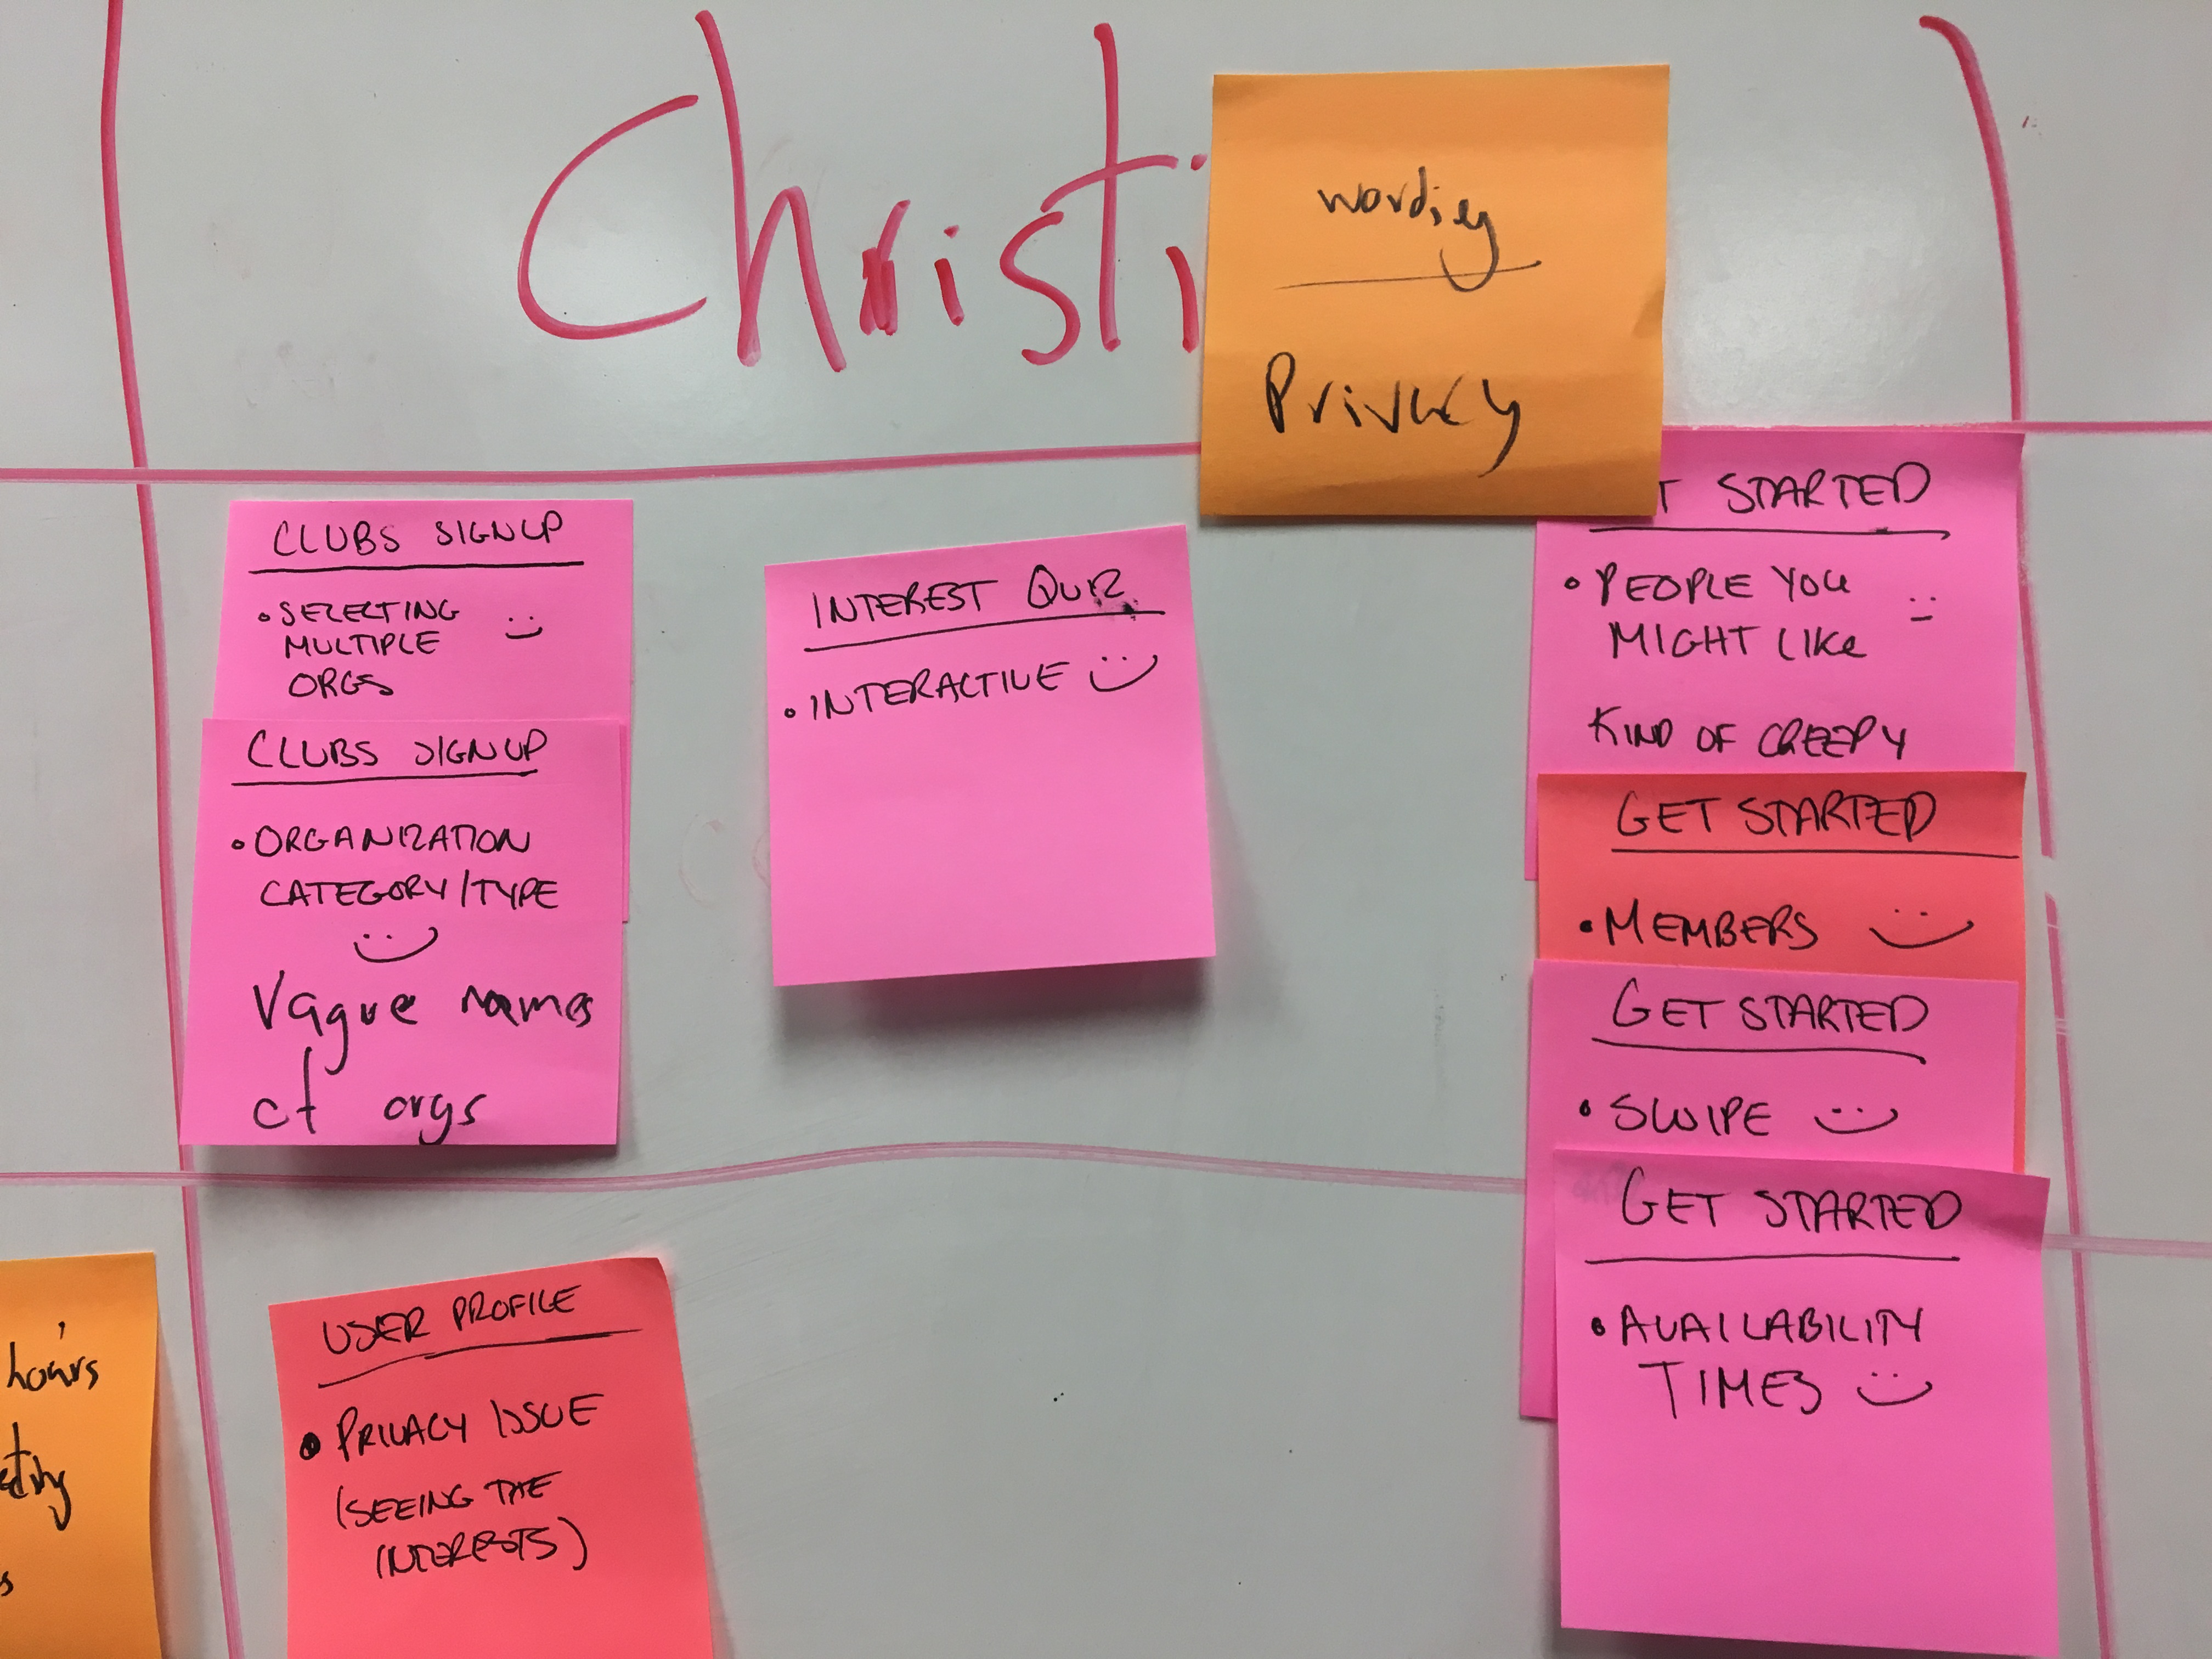 Christi
wording
Privacy
CLUBS SIGNUP
• SELECTING
MULTIPLE
ORGS
CLUBS SIGNUP
• ORGANIZATION
CATEGORY/TYPE
Vague names
of orgs
INTEREST QUIZ
• INTERACTIVE
T STARTED
• PEOPLE YOU
MIGHT LIKE
KIND OF CREEPY
GET STARTED
• MEMBERS
GET STARTED
• SWIPE
GET STARTED
• AVAILABILITY
TIMES
hours
USER PROFILE
• PRIVACY ISSUE
(SEEING THE
INTERESTS)